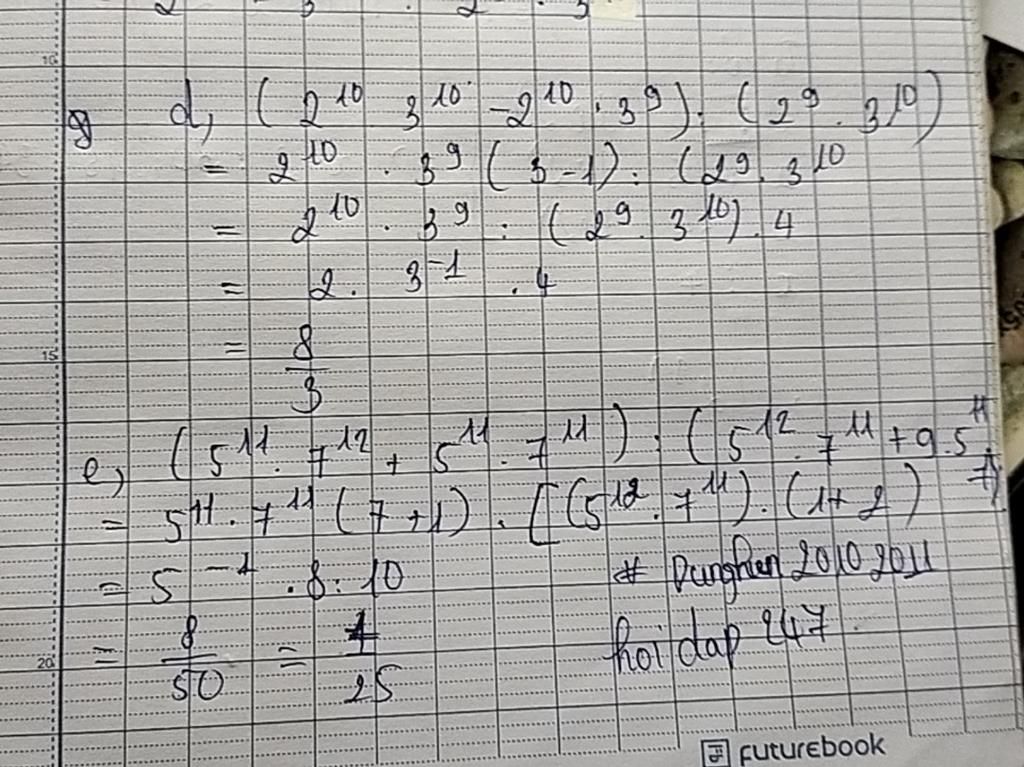 d, (2^10 3^10 - 2^10 . 3^9) : (2^9 . 3^10)
= 2^10 . 3^9 (3 - 1) : (2^9 . 3^10
= 2^10 . 3^9 : (2^9 . 3^10) . 4
= 2 . 3^-1 . 4
= 8/3
e, (5^11 . 7^12 + 5^11 . 7^11) : (5^12 . 7^11 + 9 . 5^11 .
7^11)
= 5^11 . 7^11 (7 + 1) . [(5^12 . 7^11) . (1 + 2)
= 5^-1 . 8 : 10
# Dunghien 20102011
= 8/50 = 4/25
hoidap 247
10
15
20
futurebook